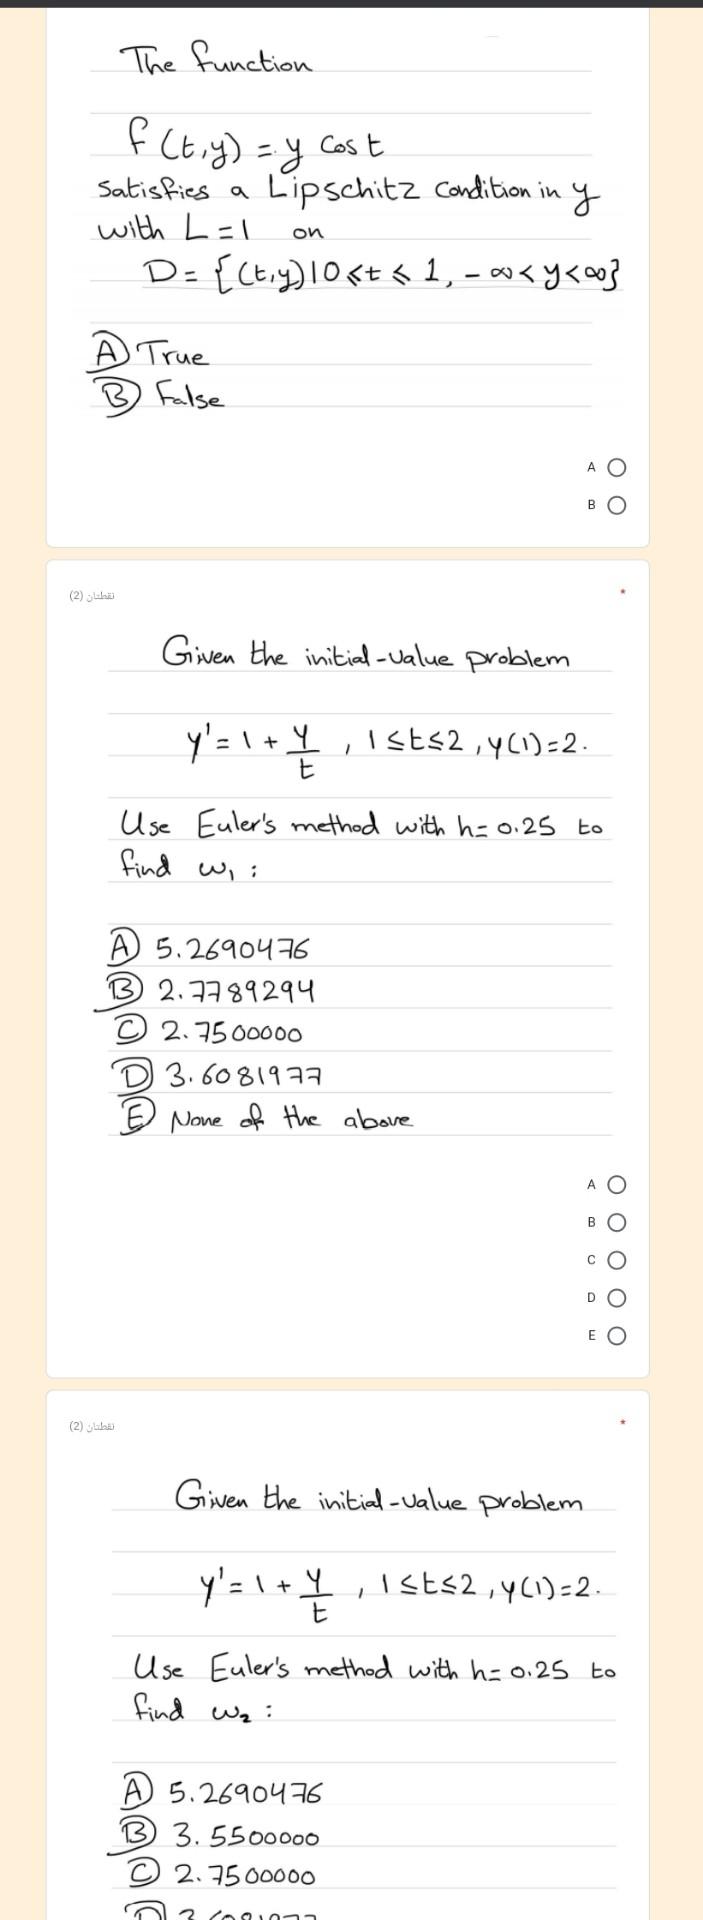 The function
f(t,y) = y cos t
Satisfies a Lipschitz Condition in y
with L=1 on
D= {(t,y)|0≤t≤1, -∞<y<∞}
A True
B False
A
B
(2) نقطتان
*
Given the initial-value problem
y'= 1 + y/t , 1≤t≤2, y(1)=2.
Use Euler's method with h= 0.25 to
find w₁ :
A 5.2690476
B 2.7789294
C 2.7500000
D 3.6081977
E None of the above
A
B
C
D
E
(2) نقطتان
*
Given the initial-value problem
y'= 1 + y/t , 1≤t≤2, y(1)=2.
Use Euler's method with h= 0.25 to
find w₂ :
A 5.2690476
B 3.5500000
C 2.7500000